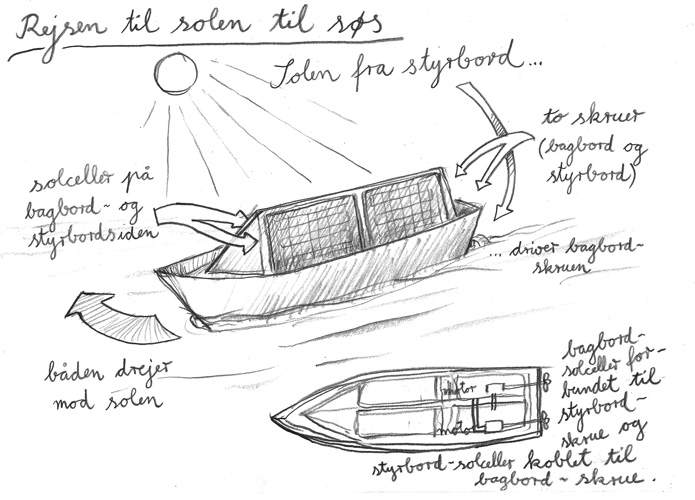 Rejsen til solen til søs
Solen fra styrbord...
to skruer
(bagbord og
styrbord)
solceller på
bagbord- og
styrbordsiden
... driver bagbord-
skruen
båden drejer
mod solen
motor
motor
bagbord-
solceller for-
bundet til
styrbord-
skrue og
styrbord-solceller koblet til
bagbord- skrue.